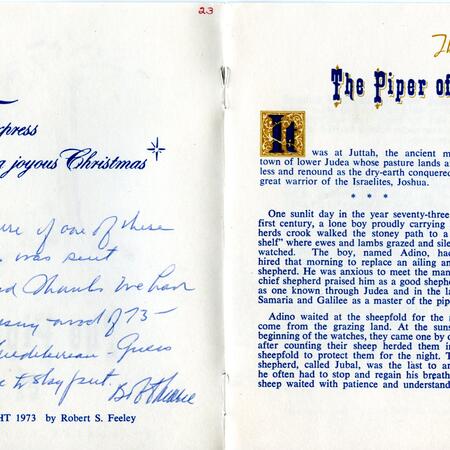 23
press
joyous Christmas
of one of these
was sent
Thanks We have
of 75-
Guess
to stay put.
HT 1973 by Robert S. Feeley
The Piper of
It was at Juttah, the ancient m
town of lower Judea whose pasture lands a
less and renound as the dry-earth conquered
great warrior of the Israelites, Joshua.
* * *
One sunlit day in the year seventy-three
first century, a lone boy proudly carrying
herds crook walked the stoney path to a
shelf" where ewes and lambs grazed and sile
watched. The boy, named Adino, had
hired that morning to replace an ailing an
shepherd. He was anxious to meet the man
chief shepherd praised him as a good sheph
as one known through Judea and in the la
Samaria and Galilee as a master of the pip
Adino waited at the sheepfold for the
come from the grazing land. At the suns
beginning of the watches, they came one by o
after counting their sheep herded them i
sheepfold to protect them for the night. T
shepherd, called Jubal, was the last to ar
he often had to stop and regain his breath
sheep waited with patience and understand